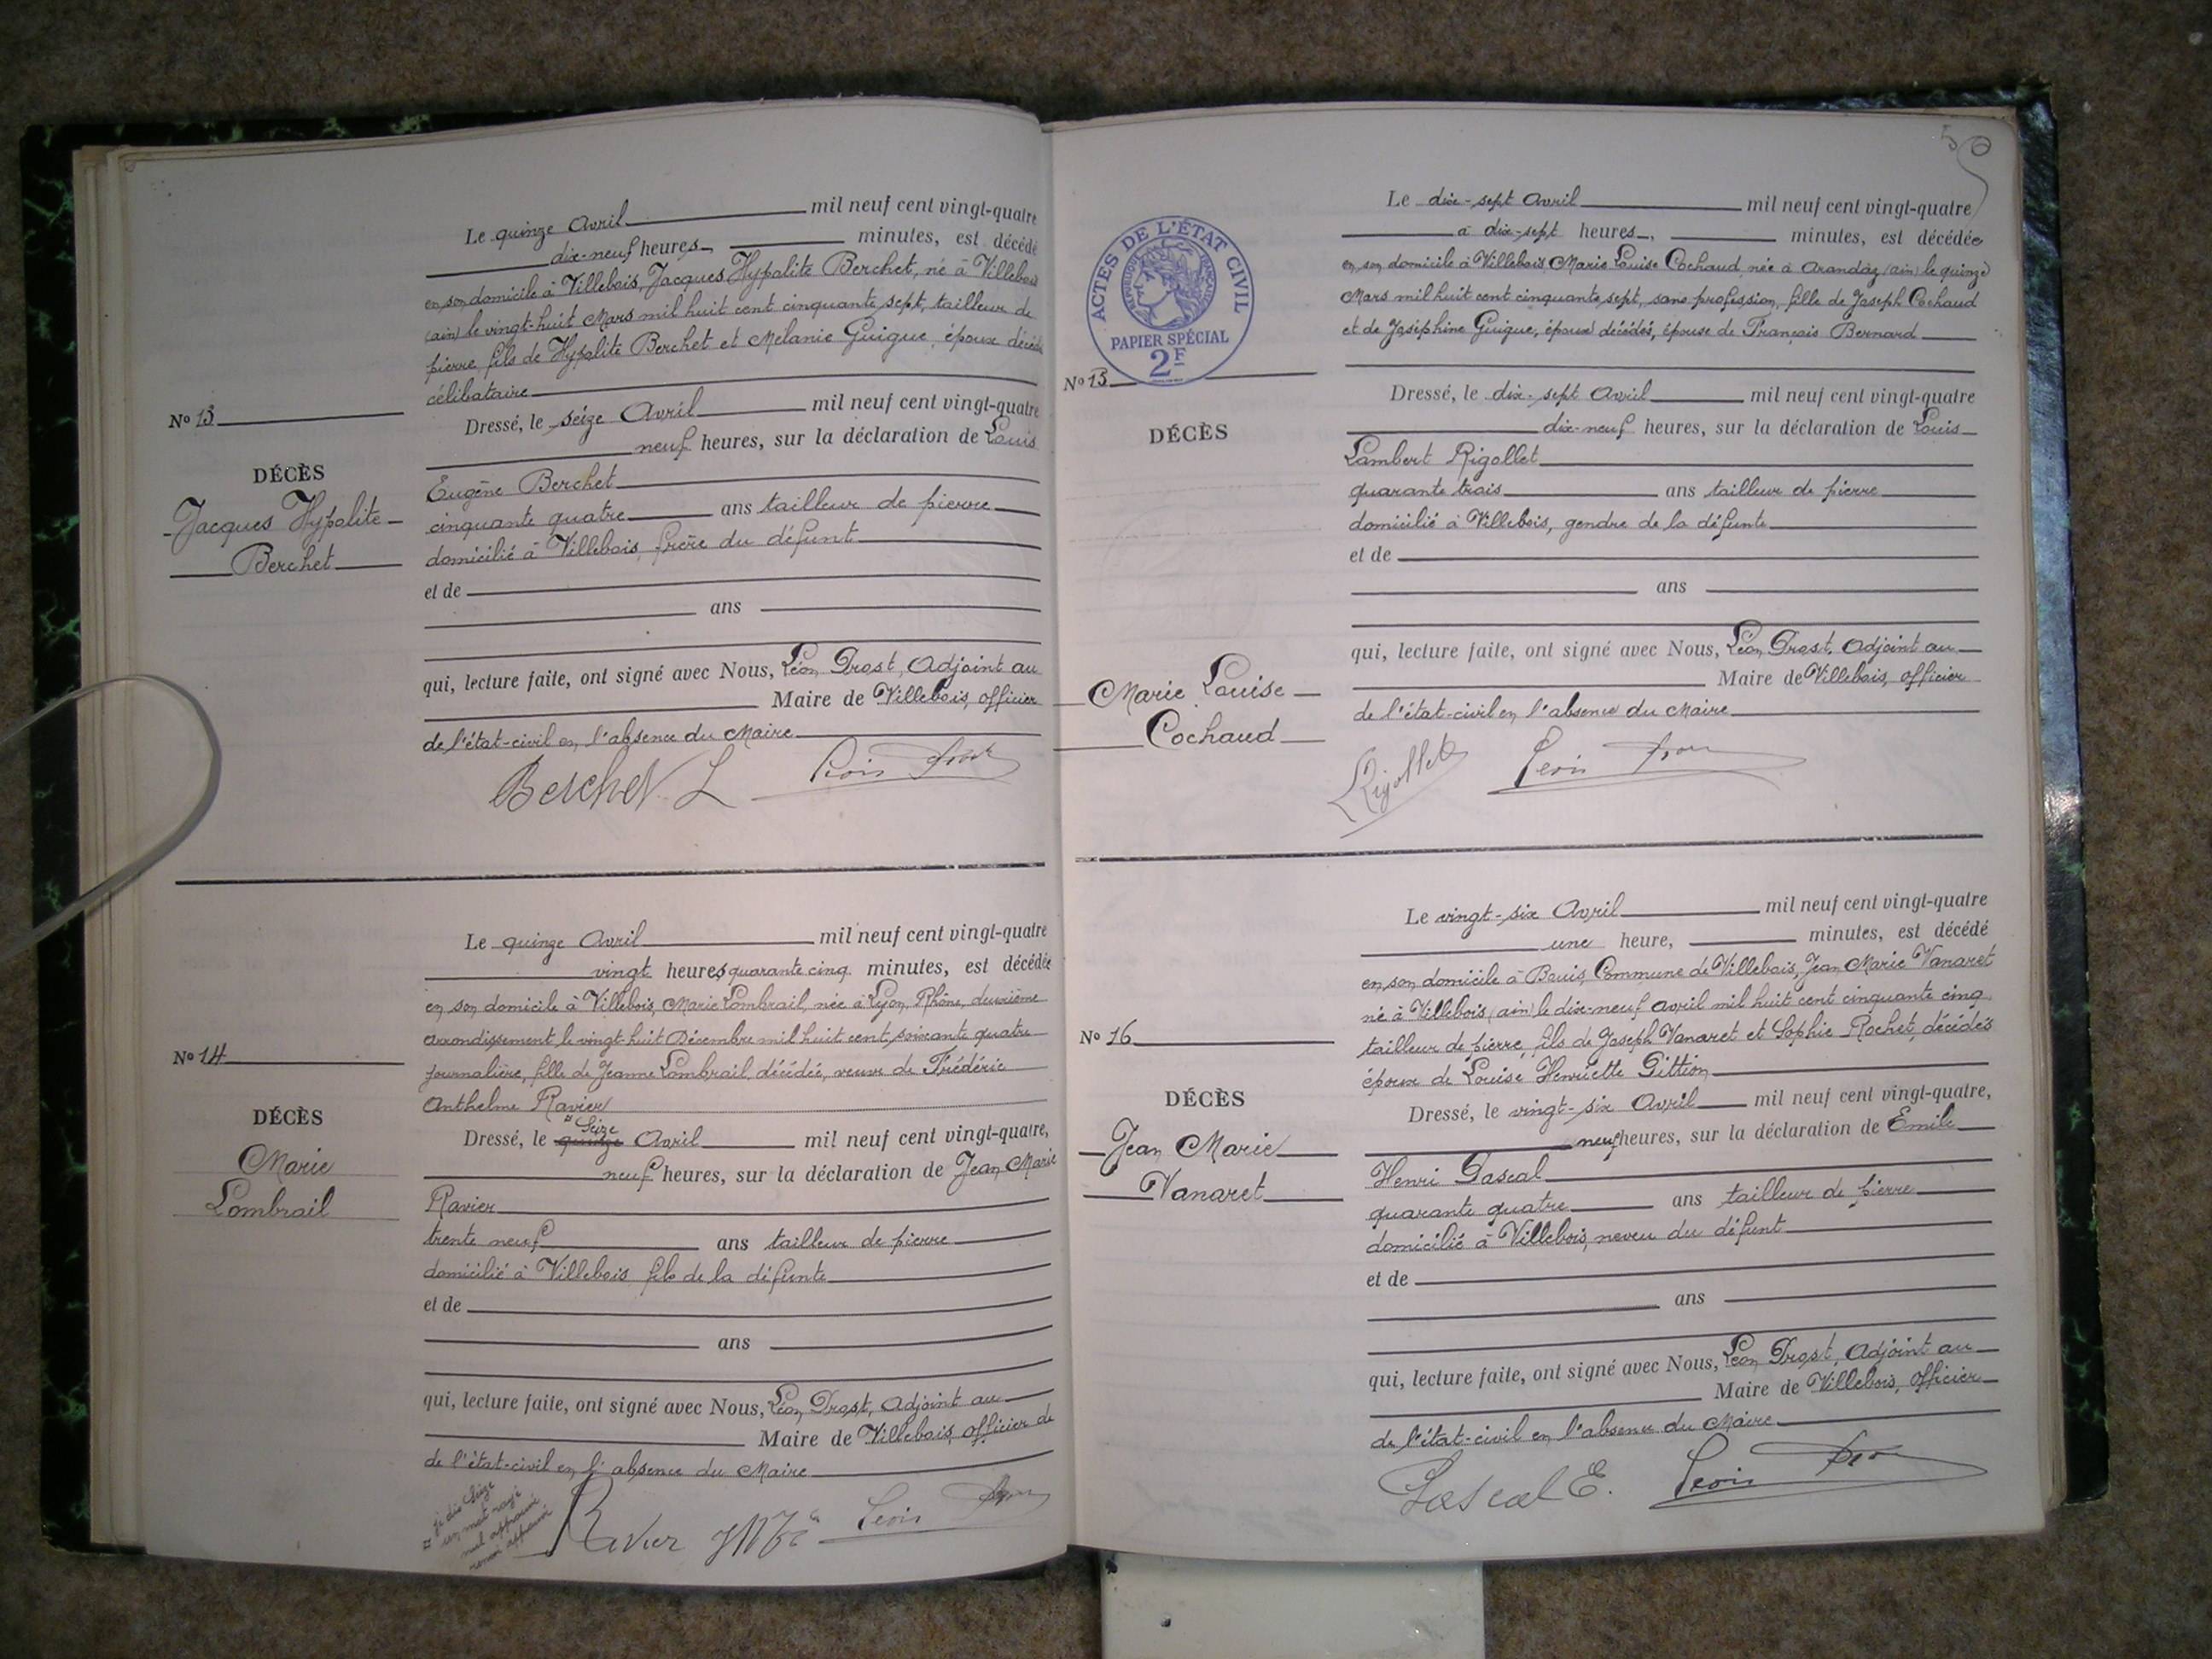 Le quinze Avril mil neuf cent vingt-quatre
dix-neuf heures, minutes, est décédé
en son domicile à Villebois, Jacques Hypolite Berchet, né à Villebois
(ain) le vingt-huit Mars mil huit cent cinquante sept, tailleur de
pierre, fils de Hypolite Berchet et Mélanie Guigue, époux décédés
célibataire
No 13
Dressé, le seize Avril mil neuf cent vingt-quatre
neuf heures, sur la déclaration de Louis
DÉCÈS
Jacques Hypolite
Berchet
Eugène Berchet
cinquante quatre ans tailleur de pierre
domicilié à Villebois, frère du défunt
et de
ans
qui, lecture faite, ont signé avec Nous, Léon Drost, Adjoint au
Maire de Villebois, officier
de l'état-civil en l'absence du Maire
Berchet L
Le quinze Avril mil neuf cent vingt-quatre
vingt heures quarante cinq minutes, est décédée
en son domicile à Villebois, Marie Lombrail, née à Lyon, Rhône, deuxième
arrondissement, le vingt-huit Décembre mil huit cent soixante quatre
journalière, fille de Jeanne Lombrail, décédée, veuve de Frédéric
Anthelme Ravier
No 14
DÉCÈS
Marie
Lombrail
¤ Seize
Dressé, le quinze Avril mil neuf cent vingt-quatre,
neuf heures, sur la déclaration de Jean Marie
Ravier
trente neuf ans tailleur de pierre
domicilié à Villebois fils de la défunte
et de
ans
qui, lecture faite, ont signé avec Nous, Léon Drost, Adjoint au
Maire de Villebois, officier de
de l'état-civil en l'absence du Maire
¤ je dis Seize
un mot rayé
nul approuvé
renvoi approuvé
Ravier
50
ACTES DE L'ÉTAT CIVIL
RÉPUBLIQUE FRANÇAISE
PAPIER SPÉCIAL
2F
Le dix-sept Avril mil neuf cent vingt-quatre
à dix-sept heures, minutes, est décédée
en son domicile à Villebois Marie Louise Cochaud, née à Arandaz (ain) le quinze
Mars mil huit cent cinquante sept, sans profession, fille de Joseph Cochaud
et de Joséphine Guigue, époux décédés, épouse de François Bernard
No 15
DÉCÈS
Marie Louise
Cochaud
Dressé, le dix-sept Avril mil neuf cent vingt-quatre
dix-neuf heures, sur la déclaration de Louis
Lambert Rigollet
quarante trois ans tailleur de pierre
domicilié à Villebois, gendre de la défunte
et de
ans
qui, lecture faite, ont signé avec Nous, Léon Drost, Adjoint au
Maire de Villebois, officier
de l'état-civil en l'absence du Maire
Rigollet
Le vingt-six Avril mil neuf cent vingt-quatre
une heure, minutes, est décédé
en son domicile à Bouis, Commune de Villebois, Jean Marie Vanaret
né à Villebois (ain) le dix-neuf avril mil huit cent cinquante cinq
tailleur de pierre, fils de Joseph Vanaret et Sophie Rochet, décédés
époux de Louise Henriette Gittion
No 16
DÉCÈS
Jean Marie
Vanaret
Dressé, le vingt-six Avril mil neuf cent vingt-quatre,
neuf heures, sur la déclaration de Emile
Henri Gascal
quarante quatre ans tailleur de pierre
domicilié à Villebois, neveu du défunt
et de
ans
qui, lecture faite, ont signé avec Nous, Léon Drost, Adjoint au
Maire de Villebois, officier
de l'état-civil en l'absence du Maire
Gascal E.